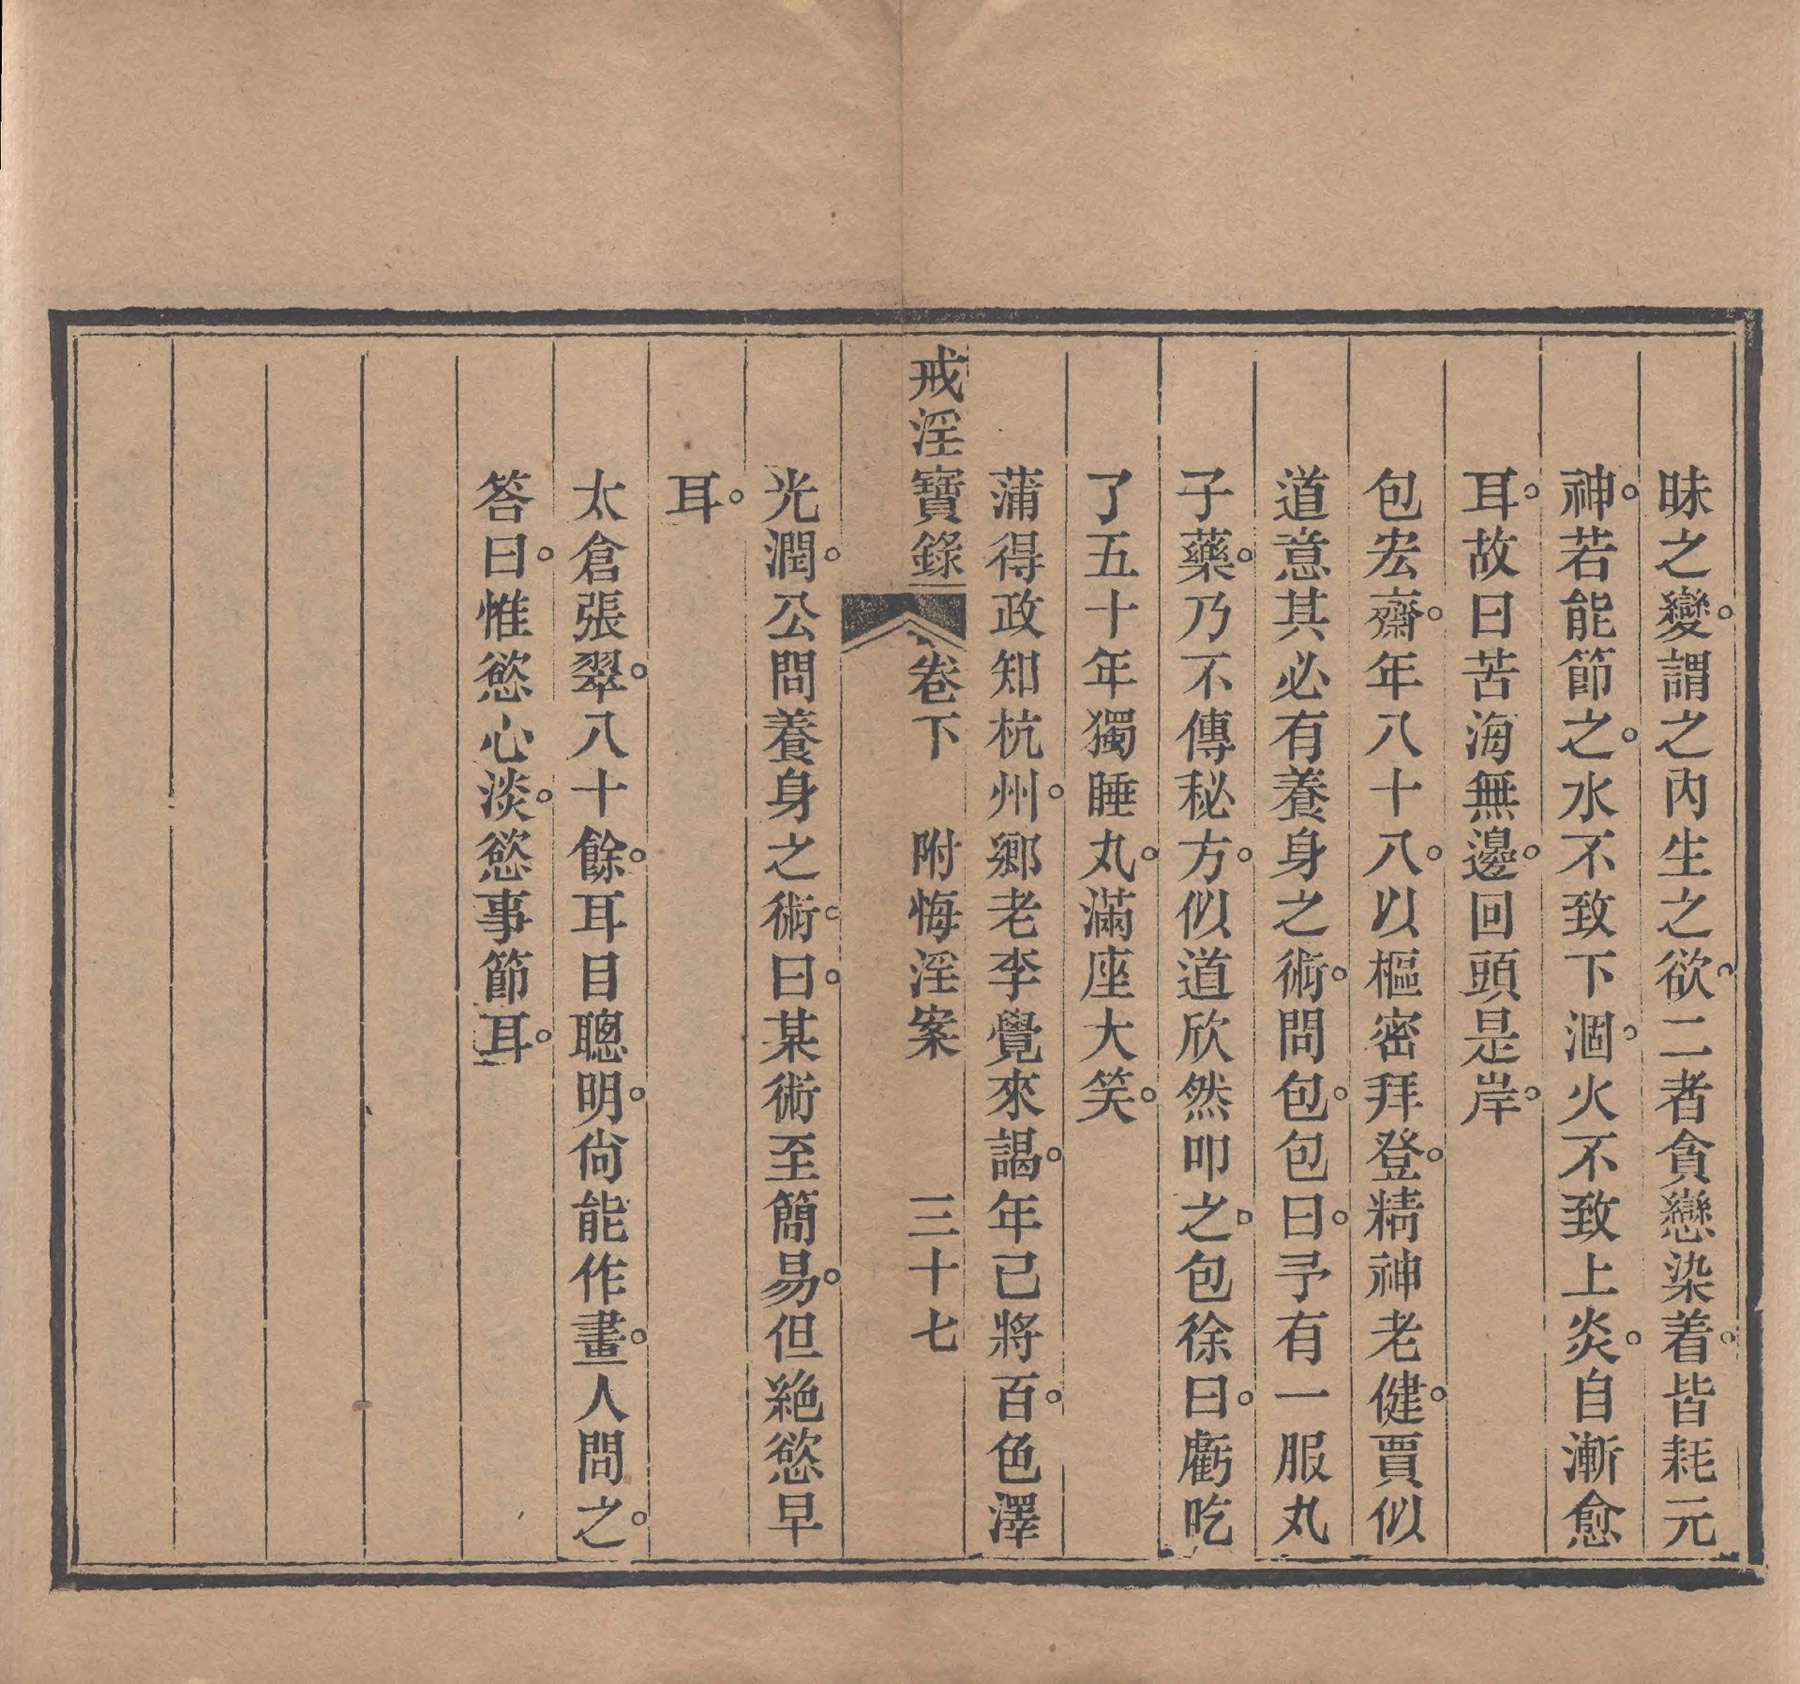 昧之變。謂之內生之欲。二者貪戀染着。皆耗元
神。若能節之。水不致下涸。火不致上炎。自漸愈
耳。故曰苦海無邊。回頭是岸。
包宏齋。年八十八。以樞密拜登。精神老健。賈似
道意其必有養身之術。問包。包曰。予有一服丸
子藥。乃不傳秘方。似道欣然叩之。包徐曰。虧吃
了五十年獨睡丸。滿座大笑。
蒲得政知杭州。鄉老李覺來謁。年已將百。色澤
戒淫寶錄 卷下 附悔淫案 三十七
光潤。公問養身之術。曰。某術至簡易。但絕慾早
耳。
太倉張翠。八十餘。耳目聰明。尙能作畫。人問之。
答曰。惟慾心淡。慾事節耳。